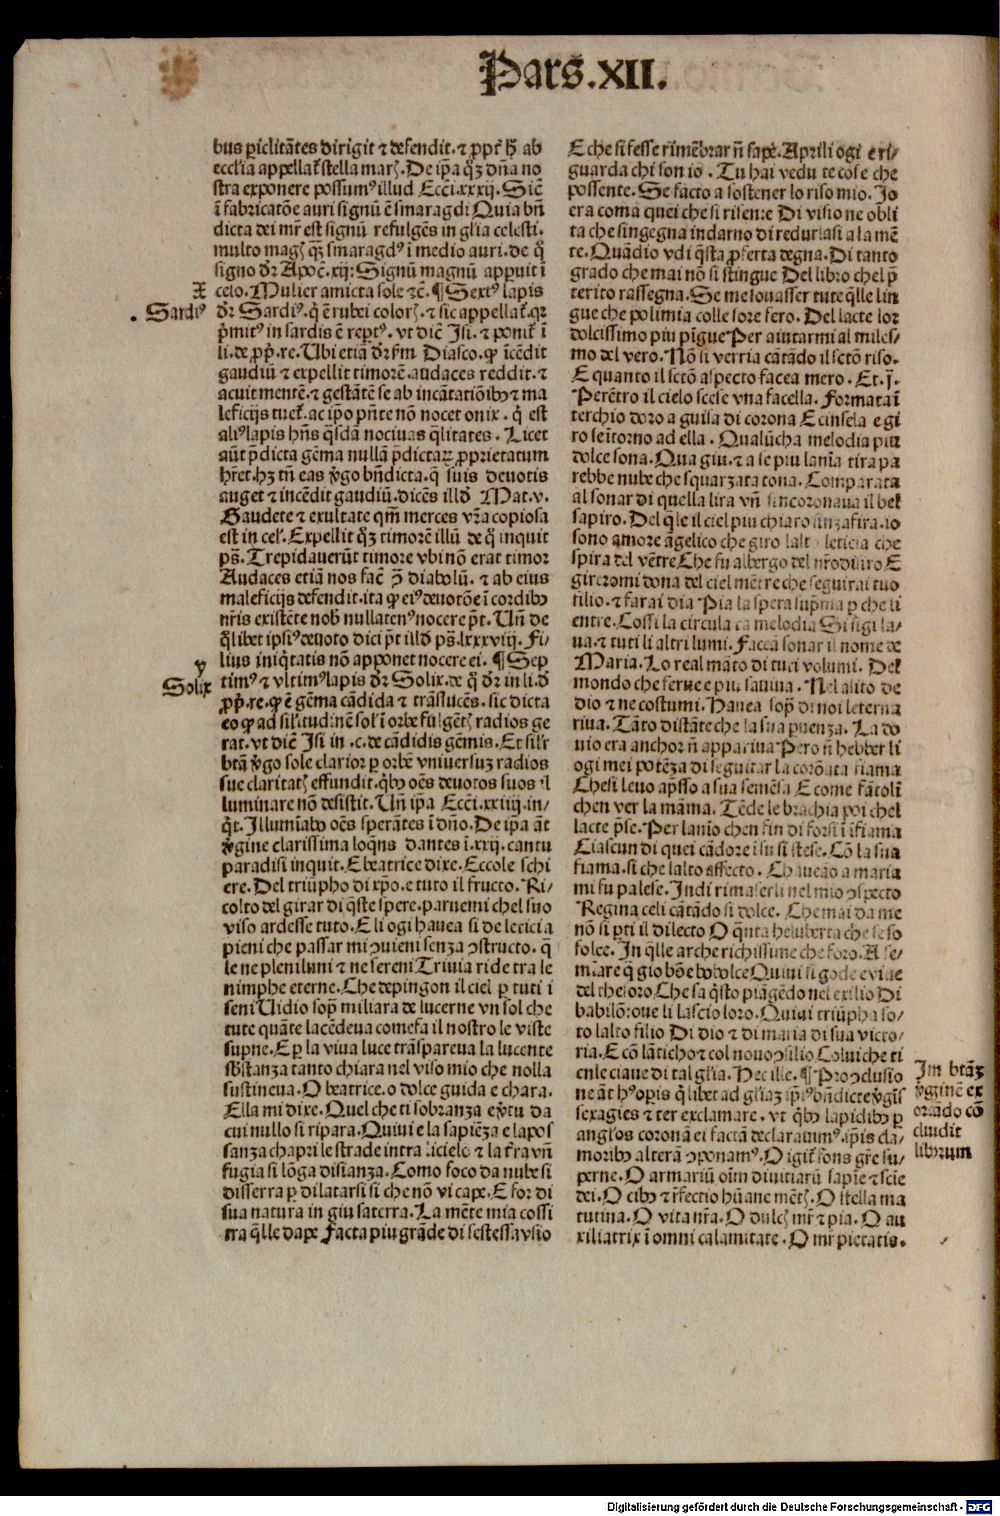 Pars.XII.
bus ꝑiclitãtes dirigit ⁊ defendit.⁊ ꝓpt̃ h̃ ab
ecclia appellat̃ stella marꝭ.De ip̃a qꝫ dñа no
stra exponere possumꝰ illud Ecci.xxxij. Sic̃
ĩ fabricatõe auri signũ ẽ smaragdi Quia bñ
dicta dei mr̃ est signũ refulgẽs in glia celesti.
multo magꝭ qꝫ smaragdꝰ ĩ medio auri.de q̃
signo dr̃ Apoc̃.xij: Signũ magnũ appuit ĩ
celo.Mulier amicta sole ⁊c̃.¶Sextꝰ lapis
dr̃ Sardiꝰ.q̃ ẽ rubei colorꝭ.⁊ sic appellat̃.qꝛ
p̃mitꝰ in sardis ẽ reptꝰ.vt dic̃ Isi.⁊ ponit̃ ĩ
li.de ꝓp̃.re.Ubi etiã dr̃ ẜm Diasco.ꝙ ĩcẽdit
gaudiũ ⁊ expellit timorẽ.audaces reddit.⁊
acuit mentẽ.⁊ gestãtẽ se ab incãtatiõibꝰ ⁊ ma
leficijs tuet̃.ac ip̃o pñte nõ nocet onix.q̃ est
aliꝰ lapis hñs q̃sdã nociuas q̃litates. Licet
aũt p̃dicta gẽma nullã p̃dictaꝝ ꝓprietatum
hr̃et.hꝫ tñ eas ꝟgo bñdicta.q̃ suis deuotis
auget ⁊ incẽdit gaudiũ.dicẽs illd̃ Mat.v.
Gaudete ⁊ exultate qm̃ merces vr̃a copiosa
est in cel̃.Expellit qꝫ timorẽ illũ de q̃ inquit
ps̃.Trepidauerũt timore vbi nõ erat timor
Audaces etiã nos fac̃ p̃ diabolũ.⁊ ab eius
maleficijs defendit.ita ꝙ eiꝰ deuotõe ĩ cordibꝰ
nr̃is existẽte nob̃ nullatenꝰ nocere p̃t. Uñ de
q̃libet ipsiꝰ deuoto dici p̃t illd̃ ps̃.lxxxviij. Fi-
lius iniq̃tatis nõ apponet nocere ei. ¶Sep
timꝰ ⁊ vltimꝰ lapis dr̃ Solix.de q̃ dr̃ in li.d̃
ꝓp̃.re.ꝙ ẽ gẽma cãdida ⁊ trãslucẽs.sic dicta
eo ꝙ ad sil̃itudinẽ sol̃ ĩ orbẽ fulgẽtꝭ radios ge
rat.vt dic̃ Isi in .c.de cãdidis gẽmis.Et sil̃r
btã ꝟgo sole clarior ꝑ orbẽ vniuersuꝫ radios
sue claritatꝭ effundit.q̃bꝰ oẽs deuotos suos il
luminare nõ desistit.Uñ ip̃a Ecci.xxiiij.in-
q̃t. Illumĩabo oẽs sperãtes ĩ dño.De ip̃a aũt
ꝟgine clarissima loqñs dantes ĩ.xxij.cantu
paradisi inquit.E beatrice dixe.Eccole schi
ere.Del triũpho di xp̃o.e tuto il fructo. Ri-
colto del girar di q̃ste spere.paruemi chel suo
viso ardesse tuto.E li ogi hauea si de leticia
pieni che passar mi ꝯuieni senza ꝯstructo. q̃
le ne pleniluni ⁊ ne sereni Triuia ride tra le
nimphe eterne.Che depingon il ciel ꝑ tuti i
seni Uidio sop̃ miliara de lucerne vn sol che
tute quãte lacẽdeua comefa il nostro le viste
sup̃ne.E ꝑ la viua luce trãspareua la lucente
sb̃stanza tanto chiara nel viso mio che nolla
sustineua.O beatrice.o dolce guida e chara.
Ella mi dixe.Quel che ti sobranza e ꝟtu da
cui nullo si ripara.Quiui e la sapiẽza e lapos
sanza chapri le strade intra licielo ⁊ la tr̃a vñ
fugia si lõga disianza.Como foco da nube si
disserra ꝑ dilatarsi si che nõ vi cape.E for di
sua natura in giu saterra.La mẽte mia cossi
tra q̃lle dape Facta piu grãde di sestessa vsio
X
Sardiꝰ
y
Solix
E che si fesse rimẽbrar ñ sape.Aprili ogi e ri-
guarda chi son io.Tu hai vedute cose che
possente.Se facto a sostener lo riso mio.Io
era coma quei che si risente Di visione obli
ta che singegna indarno di redurlasi a la mẽ
te.Quãdio vdi q̃sta ꝓferta degna.Di tanto
grado che mai nõ si stingue Del libro chel p̃
terito rassegna.Se me souasser tute q̃lle lin
gue che polimia colle sore fero.Del lacte lor
dolcissimo piu pĩgue Per aiutarmi al miles-
mo del vero.Nõ si verria cãtãdo il sctõ riso.
E quanto il sctõ aspecto facea mero.Et.j.
Perẽtro il cielo scese vna facella.Formata ĩ
terchio doro a guisa di corona E cinsela e gi
ro sen̄torno ad ella.Qualũcha melodia piu
dolce sona.Qua giu.⁊ a se piu lanĩa tira pa
rebbe nube che squarzata tona.Comparata
al sonar di quella lira vñ sincoronaua il bel̃
sapiro.Del q̃le il ciel piu chiaro sinzafira.io
sono amore ãgelico che giro lalta leticia che
spira del vẽtre Che fu albergo del nr̃o disiro E
gireromi dona del ciel mẽtre che seguirai tuo
filio.⁊ farai dia Pia la spera sup̃ma ꝑ che li
entre.Cossi la circulata melodia Si sigila-
ua.⁊ tuti li altri lumi.Faceã sonar il nome de
Maria.Lo real mãto di tuti volumi.Del̃
mondo che ferue e piu sauiua.Nel alito de
dio ⁊ ne costumi.Hauea sop̃ di noi leterna
riua.Tãto distãte che la sua paruenza.La do
uio era anchor ñ appariua Pero ñ hebber li
ogi mei potẽza di seguitar la corõata fiama
Chesi leuo apsso a sua semẽsa E come fãtolĩ
chen ver la mãma.Tẽde le brachia poi chel
lacte p̃se.Per lanĩo chen fin di fori ĩfiama
Ciascun di quei cãdore ĩ su si stese.Cõ la sua
fiama.si che lalto affecto.Chaueão a maria
mi fu palese.Indi rimaserli nel mio ꝯspecto
Regina celi cãtãdo si dolce.Che mai da me
nõ si ꝑti il dilecto O q̃nta he luberta che se so
folce.In q̃lle arche richissime che foro.A se-
mĩare q̃ gio bõe bobolce Quiui si gode e viue
del thesoro Che sa q̃sto piãgẽdo nel exilio Di
babilõ: oue li lascio loro.Quiui triũpha so-
to lalto filio Di dio ⁊ di maria di sua victo-
ria.E cõ lãticho ⁊ col nouo ꝯsilio Colui che ti
enle ciaue di tal gl̃ia.Hec ille.¶Pro ꝯclusio
ne aũt hꝰ oꝑis q̃libet ad gl̃iaꝫ ip̃iꝰ bñdicte ꝟgĩs
sexagies ⁊ ter exclamare.vt q̃bꝰ lapidibꝰ ꝑ
angl̃os coronã ei factã declarauimꝰ.ip̃is cla-
moribꝰ alterã ꝯponamꝰ.O igit̃ fons gr̃e su-
perne.O armariũ oĩm diuitiarũ sapĩe ⁊ scĩe
dei.O cibꝰ ⁊ r̃fectio hũane mẽtꝭ.O stella ma
tutina.O vita nr̃a.O dulcꝭ mr̃ ⁊ pia.O au
xiliatrix ĩ omni calamitate.O mr̃ pietatis.
Im btãꝫ
ꝟginẽ ex
orãdo cõ
cludit
librum
Digitalisierung gefördert durch die Deutsche Forschungsgemeinschaft - DFG